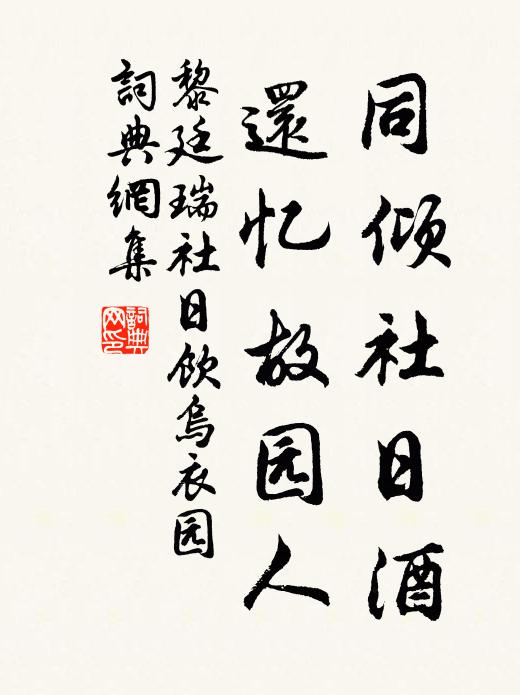 同倾社日酒
還忆故园人
黎廷瑞社日飲烏衣园
詞典網集
詞典网印